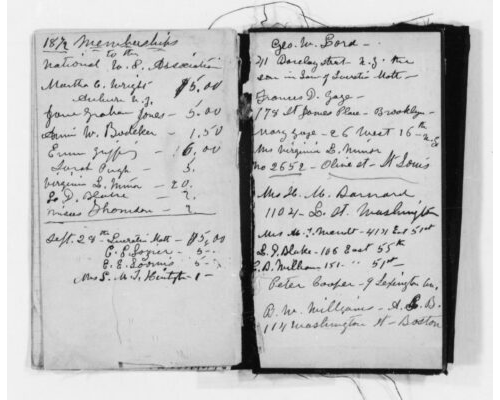 1872 Memberships
to the
National W. S. Association
Martha C. Wright $5,00
Auburn N.Y.
Jane Graham Jones - 5.00
W. - 1.50
Griffing 16,00
Sarah Pugh - 5.
Virginia L. Minor - 20.
D. Blake - 2.
Thomson - 2
Sept. 28th Lucretia Mott - $5,00
C. E. Lozier - 5 -
E. E. Loomis 5 -
Mrs S. M. T. - 1 -
Geo. W. Lord -
21 Barclay street N.Y. the
son in law of Lucretia Mott -
Frances D. Gage -
178 St James Place - Brooklyn -
Mary Gage - 26 West 16th
Mrs Virginia L. Minor
No 2652 - Olive st - St Louis
Mrs H. M. Barnard
1102 - L. St. Washington
Mrs M. - 414 E 51st
L. D. Blake - 106 East 55th
C. B. Wilbour 151 - " 51st -
Peter Cooper - 9 Lexington Av,
R. W. Williams - A. L. B.
114 Washington St - Boston